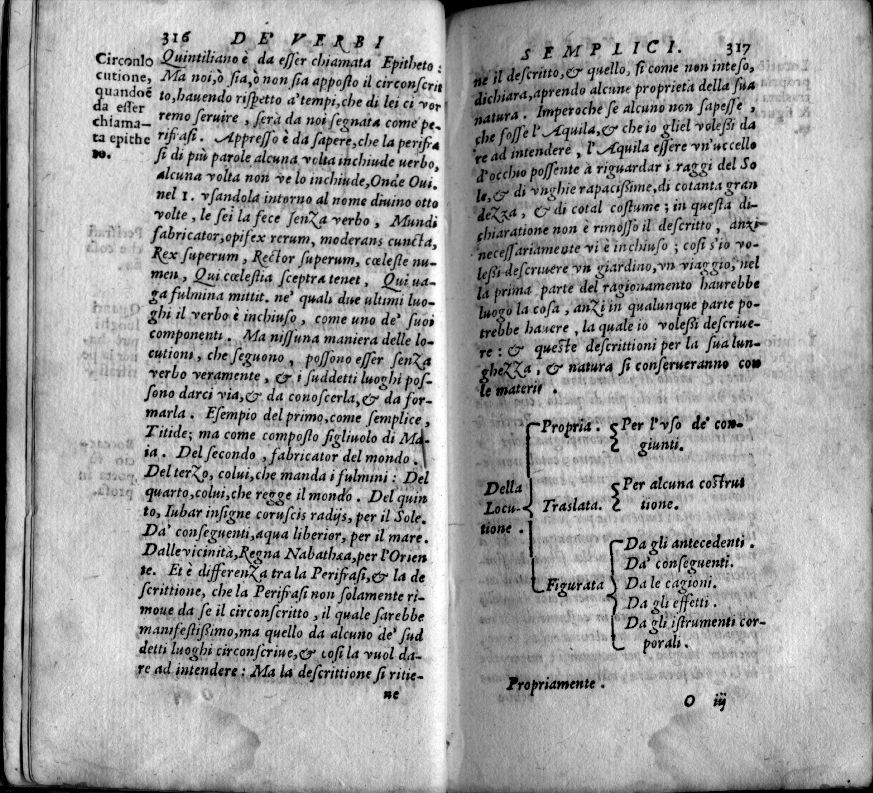 316 DE' VERBI
Circonlo
cutione,
quandoè
da esser
chiama-
ta epithe
to.
Quintiliano è da esser chiamata Epitheto:
Ma noi, ò sia, ò non sia apposto il circonscrit
to, hauendo rispetto a' tempi, che di lei ci vor
remo seruire, serà da noi segnata come pe-
rifrasi. Appresso è da sapere, che la perifra
si di più parole alcuna volta inchiude verbo,
alcuna volta non ve lo inchiude, Onde Oui.
nel 1. vsandola intorno al nome diuino otto
volte, le sei la fece senza verbo, Mundi
fabricator, opifex rerum, moderans cuncta,
Rex superum, Rector superum, cœleste nu-
men, Qui cœlestia sceptra tenet, Qui ua-
ga fulmina mittit. ne' quali due ultimi luo-
ghi il verbo è inchiuso, come uno de' suoi
componenti. Ma nissuna maniera delle lo-
cutioni, che seguono, possono esser senza
verbo veramente, & i suddetti luoghi pos-
sono darci via, & da conoscerla, & da for-
marla. Esempio del primo, come semplice,
Titide; ma come composto figliuolo di Ma-
ia. Del secondo, fabricator del mondo.
Del terzo, colui, che manda i fulmini: Del
quarto, colui, che regge il mondo. Del quin
to, Iubar insigne coruscis radijs, per il Sole.
Da' conseguenti, aqua liberior, per il mare.
Dalle vicinità, Regna Nabathæa, per l'Orien
te. Et è differenza tra la Perifrasi, & la de
scrittione, che la Perifrasi non solamente ri-
moue da se il circonscritto, il quale sarebbe
manifestißimo, ma quello da alcuno de' sud
detti luoghi circonscriue, & cosi la vuol da-
re ad intendere: Ma la descrittione si ritie-
ne
SEMPLICI. 317
ne il descritto, & quello, si come non inteso,
dichiara, aprendo alcune proprietà della sua
natura. Imperoche se alcuno non sapesse,
che fosse l'Aquila, & che io gliel voleßi da
re ad intendere, l'Aquila essere vn'uccello
d'occhio possente à riguardar i raggi del So
le, & di vnghie rapacißime, di cotanta gran
dezza, & di cotal costume; in questa di-
chiaratione non è rimosso il descritto, anzi
necessariamente vi è inchiuso; cosi s'io vo-
leßi descriuere vn giardino, vn viaggio, nel
la prima parte del ragionamento haurebbe
luogo la cosa, anzi in qualunque parte po-
trebbe hauere, la quale io voleßi descriue-
re: & queste descrittioni per la sua lun-
ghezza, & natura si conserueranno con
le materie.
Della
Locu-
tione.
Propria. Per l'vso de' con-
giunti.
Traslata. Per alcuna costrut
tione.
Figurata
Da gli antecedenti.
Da' conseguenti.
Da le cagioni.
Da gli effetti.
Da gli istrumenti cor-
porali.
Propriamente.
O iij